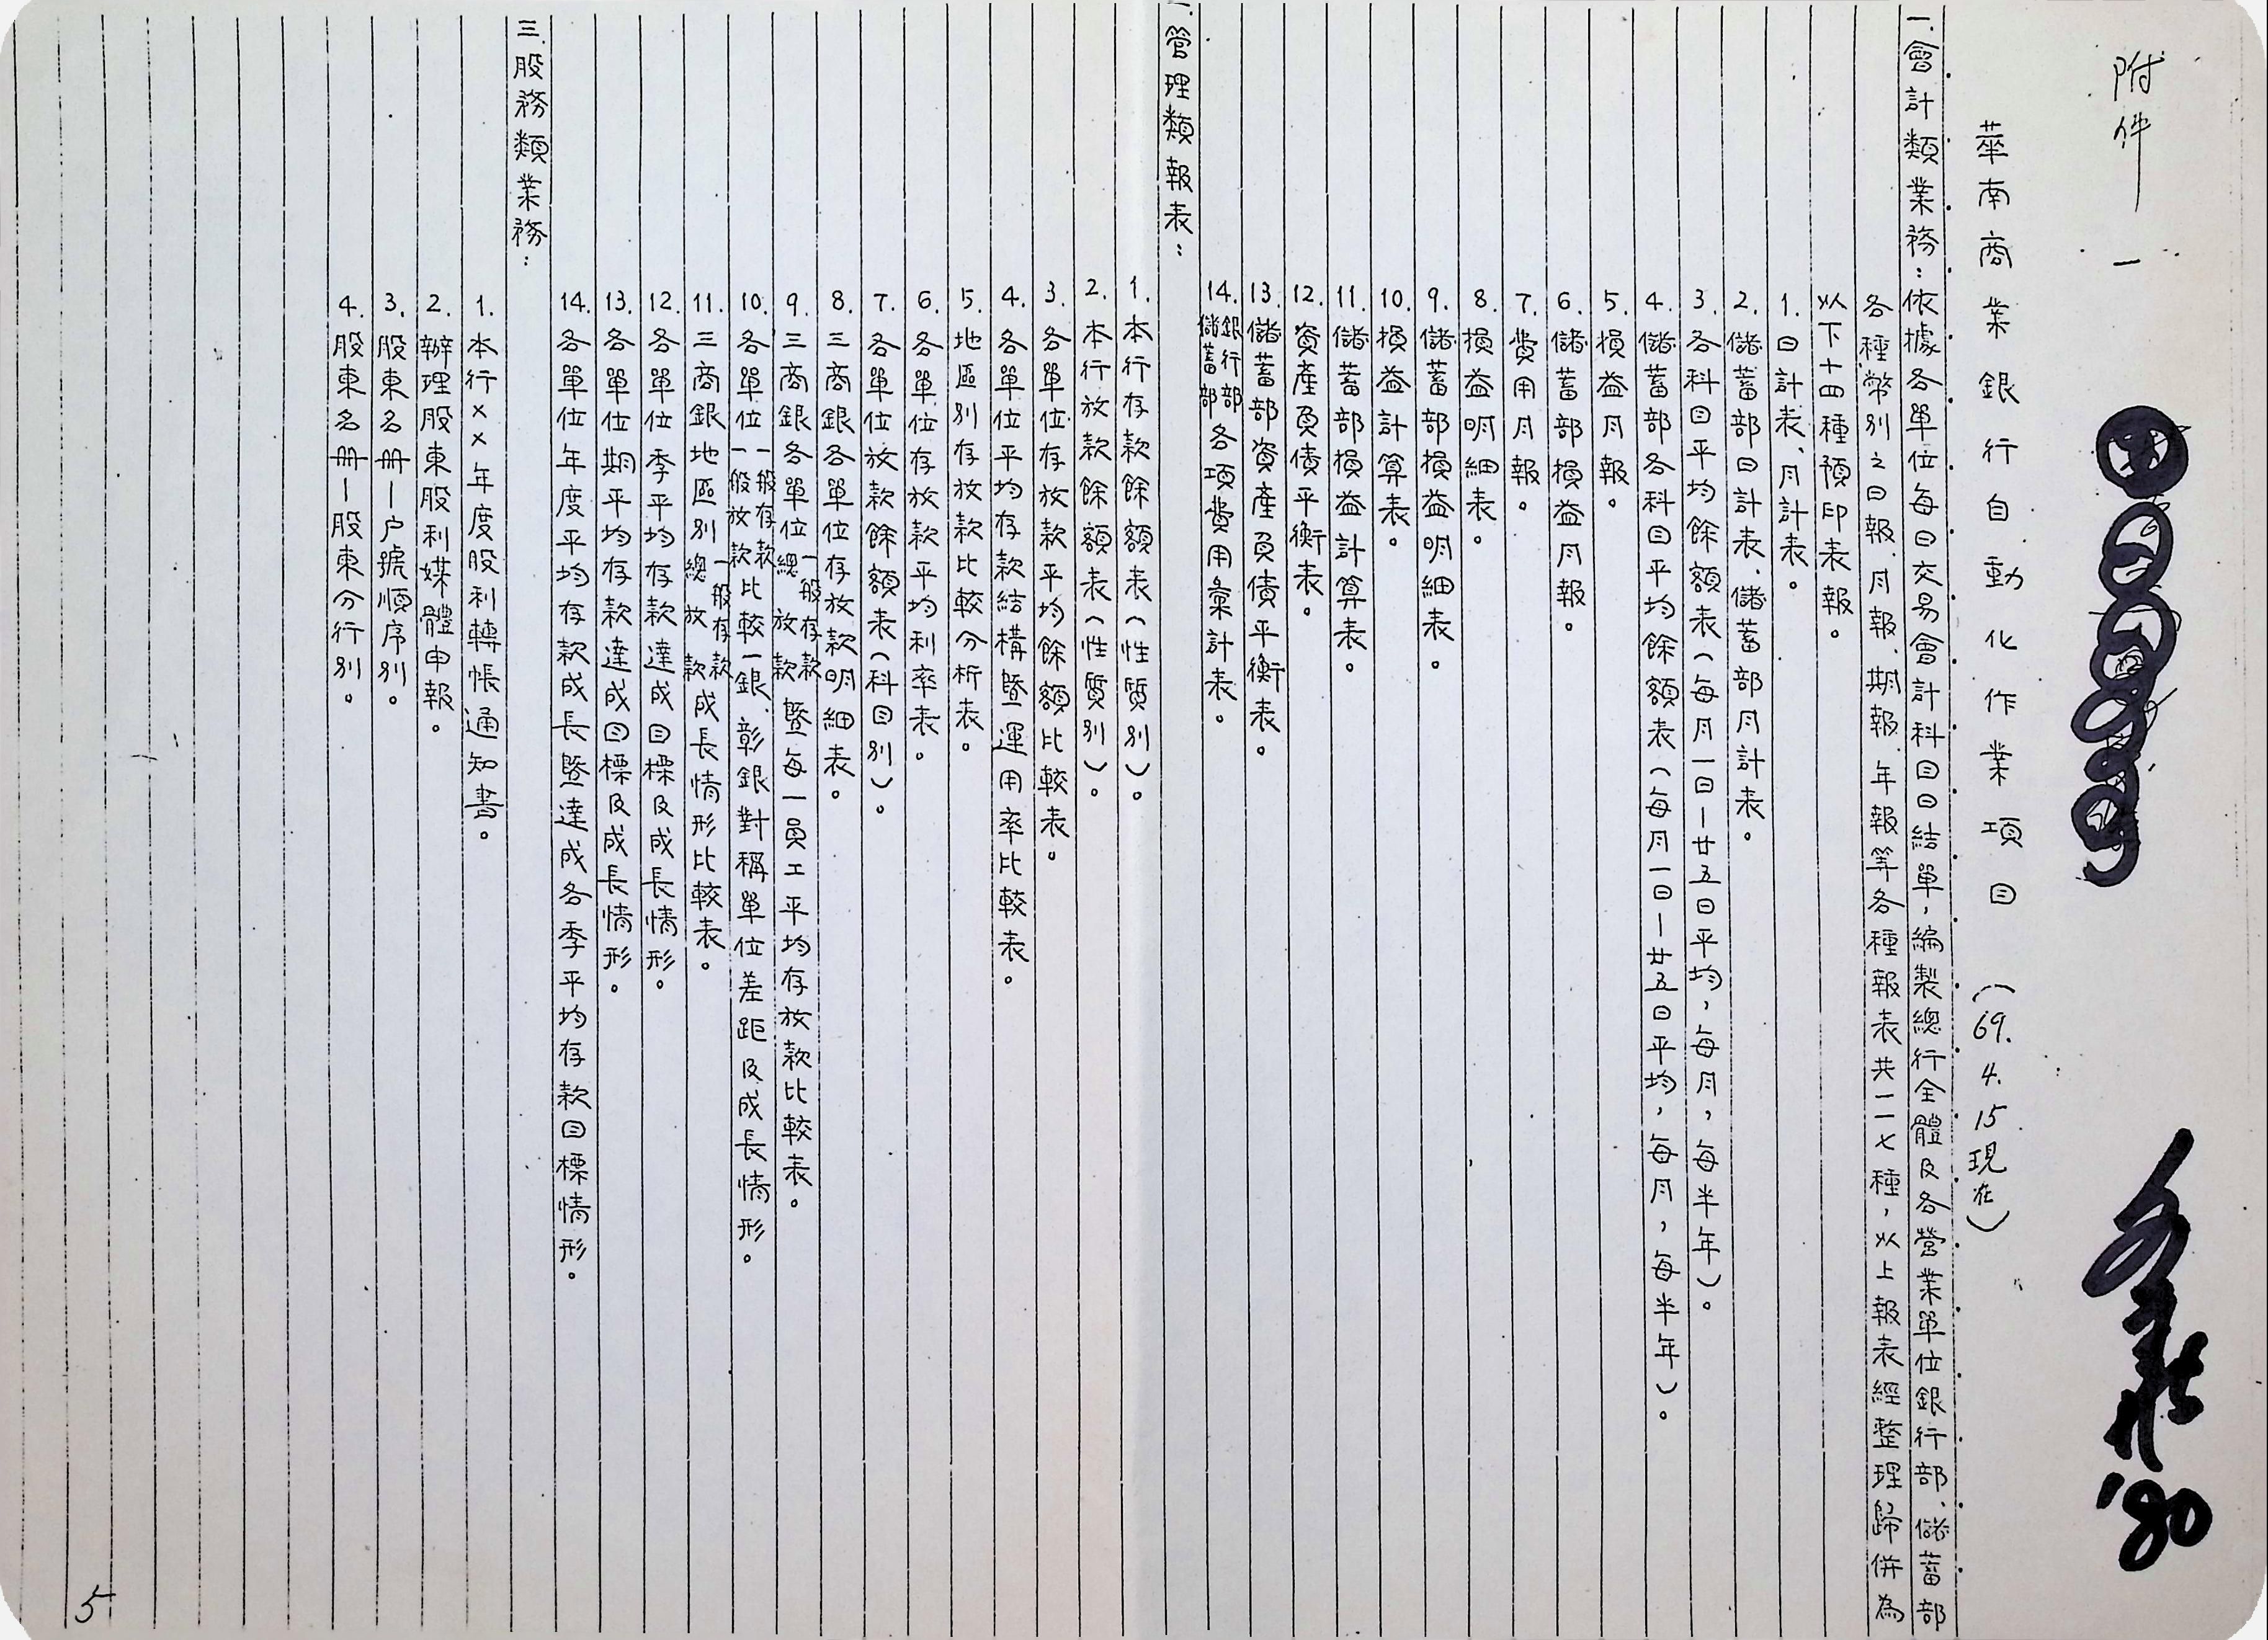 附件一
華南商業銀行自動化作業項目（69.4.15現在）
一.會計類業務：依據各單位每日交易會計科目日結單，編製總行全體及各營業單位銀行部、儲蓄部
各種幣別之日報、月報、期報、年報等各種報表共一一七種，以上報表經整理歸併為
以下十四種預印表報。
1.日計表、月計表。
2.儲蓄部日計表、儲蓄部月計表。
3.各科目平均餘額表（每月一日—廿五日平均，每月，每半年）。
4.儲蓄部各科目平均餘額表（每月一日—廿五日平均，每月，每半年）。
5.損益月報。
6.儲蓄部損益月報。
7.費用月報。
8.損益明細表。
9.儲蓄部損益明細表。
10.損益計算表。
11.儲蓄部損益計算表。
12.資產負債平衡表。
13.儲蓄部資產負債平衡表。
14.銀行部儲蓄部各項費用彙計表。
二.管理類報表：
1.本行存款餘額表（性質別）。
2.本行放款餘額表（性質別）。
3.各單位存放款平均餘額比較表。
4.各單位平均存款結構暨運用率比較表。
5.地區別存放款比較分析表。
6.各單位存放款平均利率表。
7.各單位放款餘額表（科目別）。
8.三商銀各單位存放款明細表。
9.三商銀各單位總一般存款放款暨每一員工平均存放款比較表。
10.各單位一般存款一般放款比較一銀、彰銀對稱單位差距及成長情形。
11.三商銀地區別總一般存款放款成長情形比較表。
12.各單位季平均存款達成目標及成長情形。
13.各單位期平均存款達成目標及成長情形。
14.各單位年度平均存款成長暨達成各季平均存款目標情形。
三.股務類業務：
1.本行××年度股利轉帳通知書。
2.辦理股東股利媒體申報。
3.股東名冊—户號順序別。
4.股東名冊—股東分行別。
'80
5